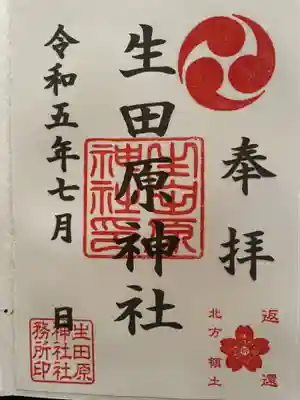 奉拝
返還
北方領土
生田原神社
生田原神社印
令和五年七月 日
生田原
神社社
務所印